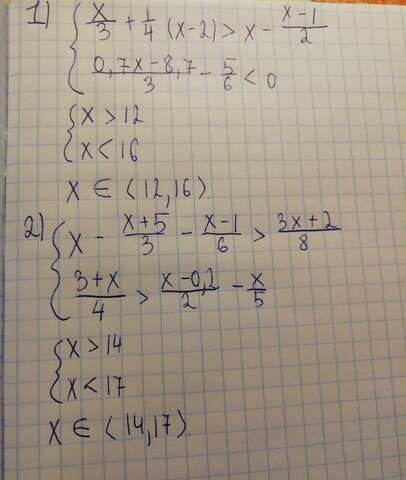 1) { x/3 + 1/4 (x-2) > x - (x-1)/2
(0,7x-8,7)/3 - 5/6 < 0
{ x > 12
x < 16
x ∈ (12,16).
2) { x - (x+5)/3 - (x-1)/6 > (3x+2)/8
(3+x)/4 > (x-0,2)/2 - x/5
{ x > 14
x < 17
x ∈ (14,17).